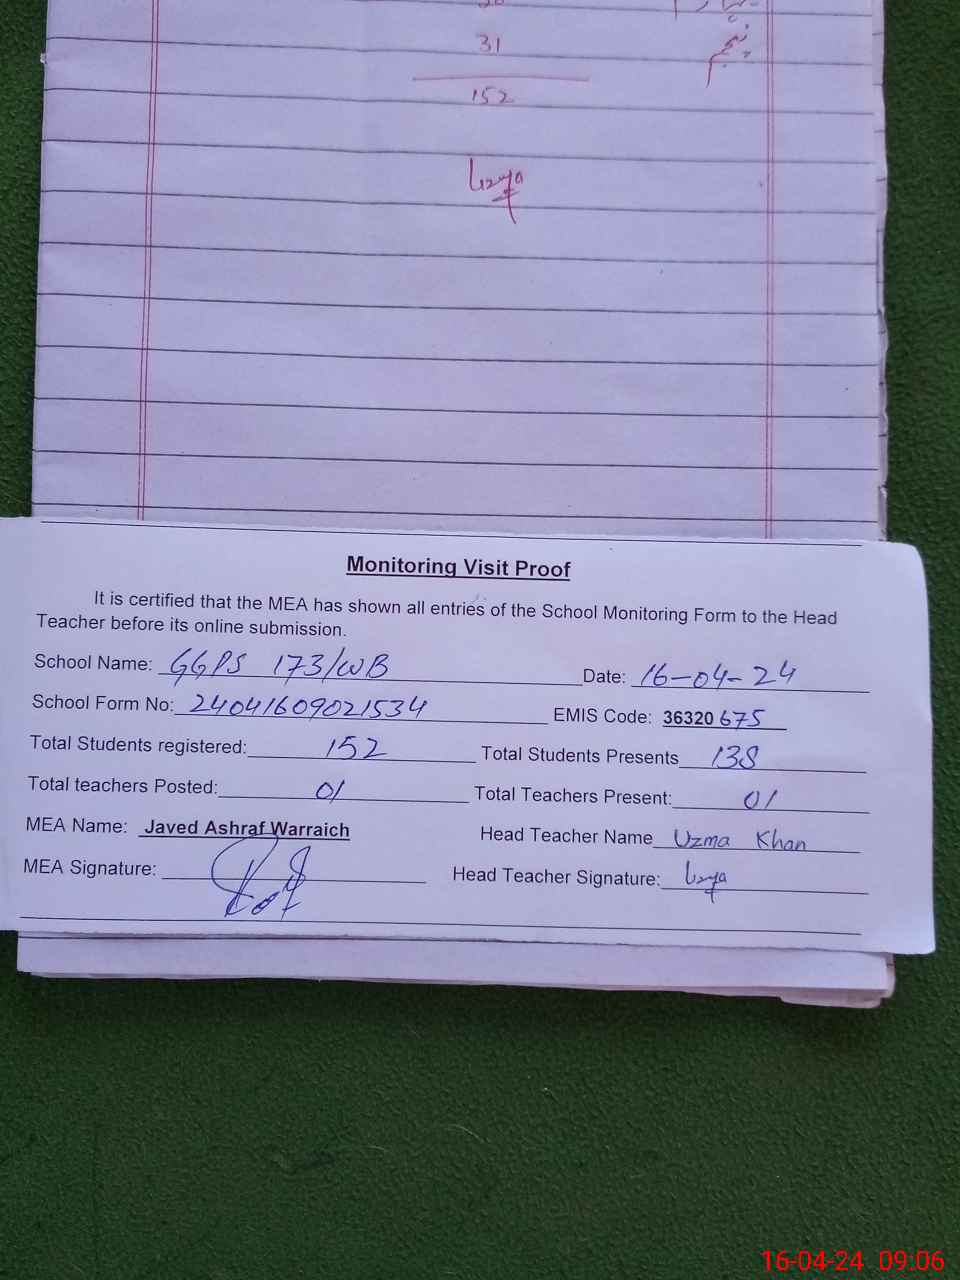 31
152
Monitoring Visit Proof
It is certified that the MEA has shown all entries of the School Monitoring Form to the Head
Teacher before its online submission.
School Name: GGPS 173/WB Date: 16-04-24
School Form No: 24041609021534 EMIS Code: 36320 675
Total Students registered: 152 Total Students Presents 138
Total teachers Posted: 01 Total Teachers Present: 01
MEA Name: Javed Ashraf Warraich Head Teacher Name Uzma Khan
MEA Signature: Head Teacher Signature:
16-04-24 09:06